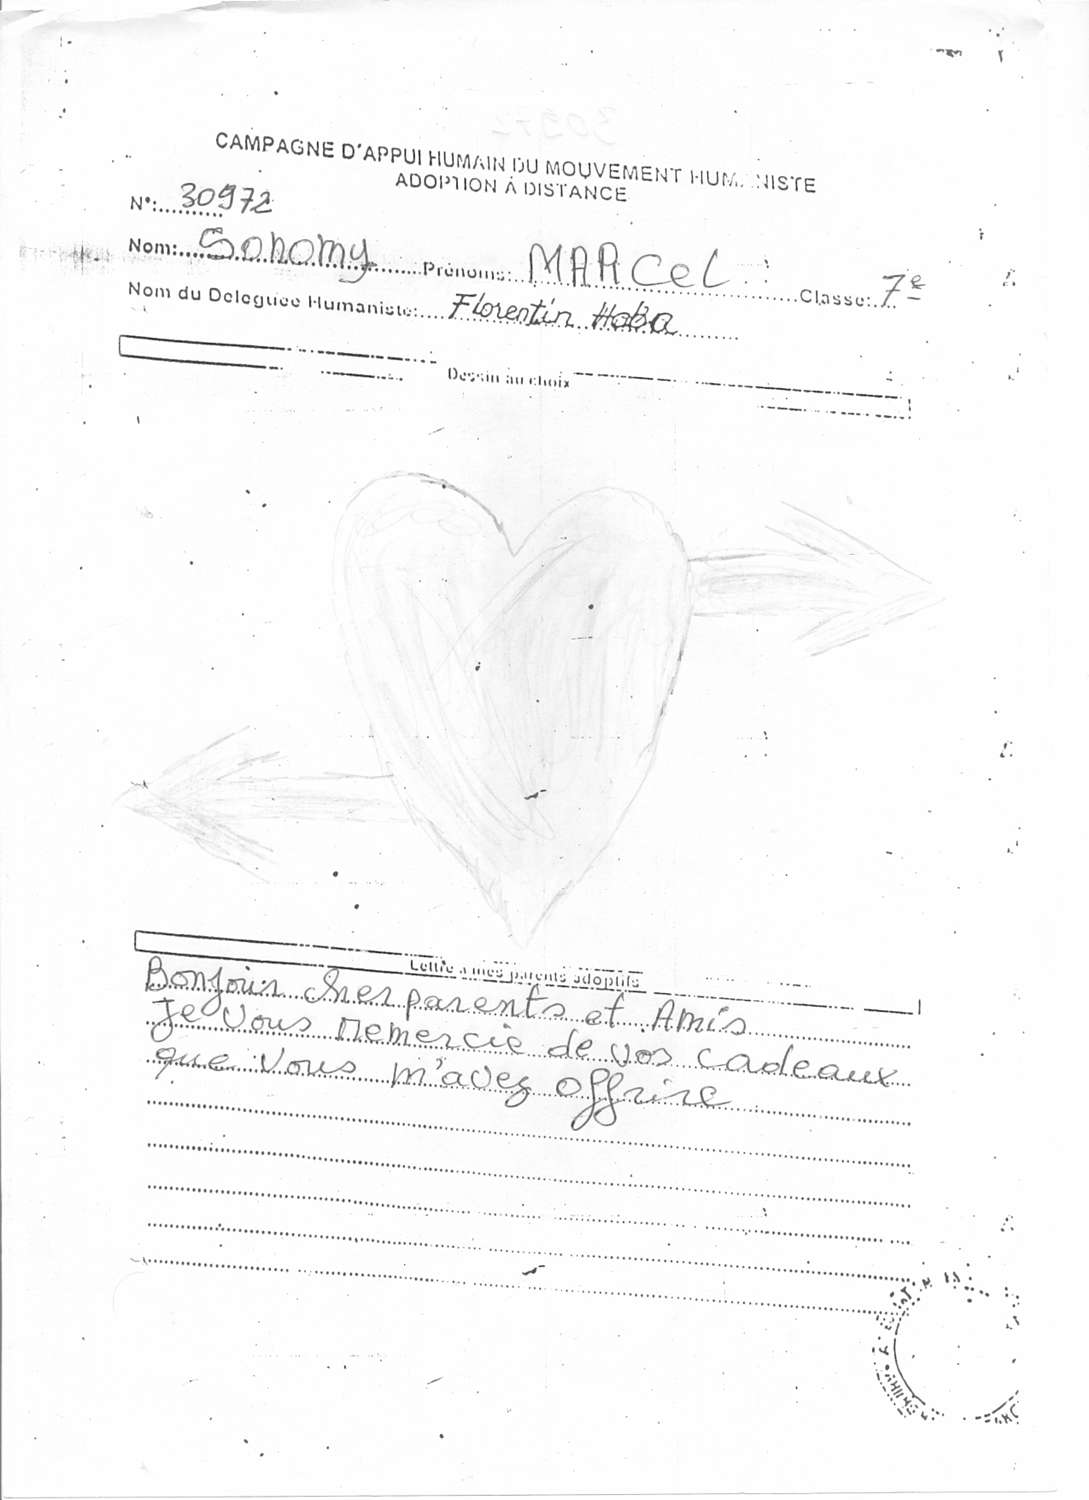 CAMPAGNE D'APPUI HUMAIN DU MOUVEMENT HUMANISTE
ADOPTION À DISTANCE
N°: 30972
Nom: Sonomy Prénoms: MARCeL Classe: 7e
Nom du Deleguee Humaniste: Florentin HaBa
Dessin au choix
Lettre a mes parents adoptifs
Bonjour chers parents et Amis
Je vous remercie de vos cadeaux
que vous m'avez offrire